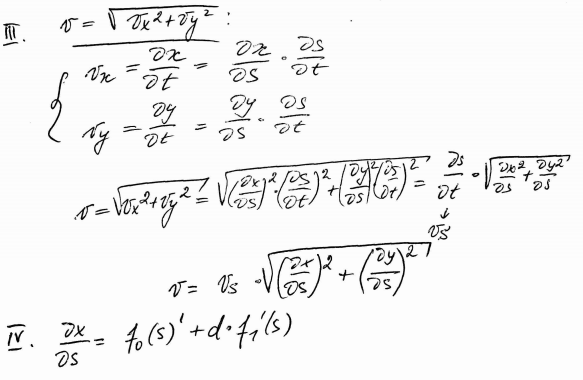 III. v = √(vx² + vy²) :
{ vx = ∂x/∂t = ∂x/∂s · ∂s/∂t
vy = ∂y/∂t = ∂y/∂s · ∂s/∂t
v = √(vx² + vy²) = √((∂x/∂s)² · (∂s/∂t)² + (∂y/∂s)² (∂s/∂t)²) = ∂s/∂t · √(∂x²/∂s + ∂y²/∂s)
↓
vs
v = vs · √((∂x/∂s)² + (∂y/∂s)²)
IV. ∂x/∂s = f₀(s)' + d · f₁'(s)